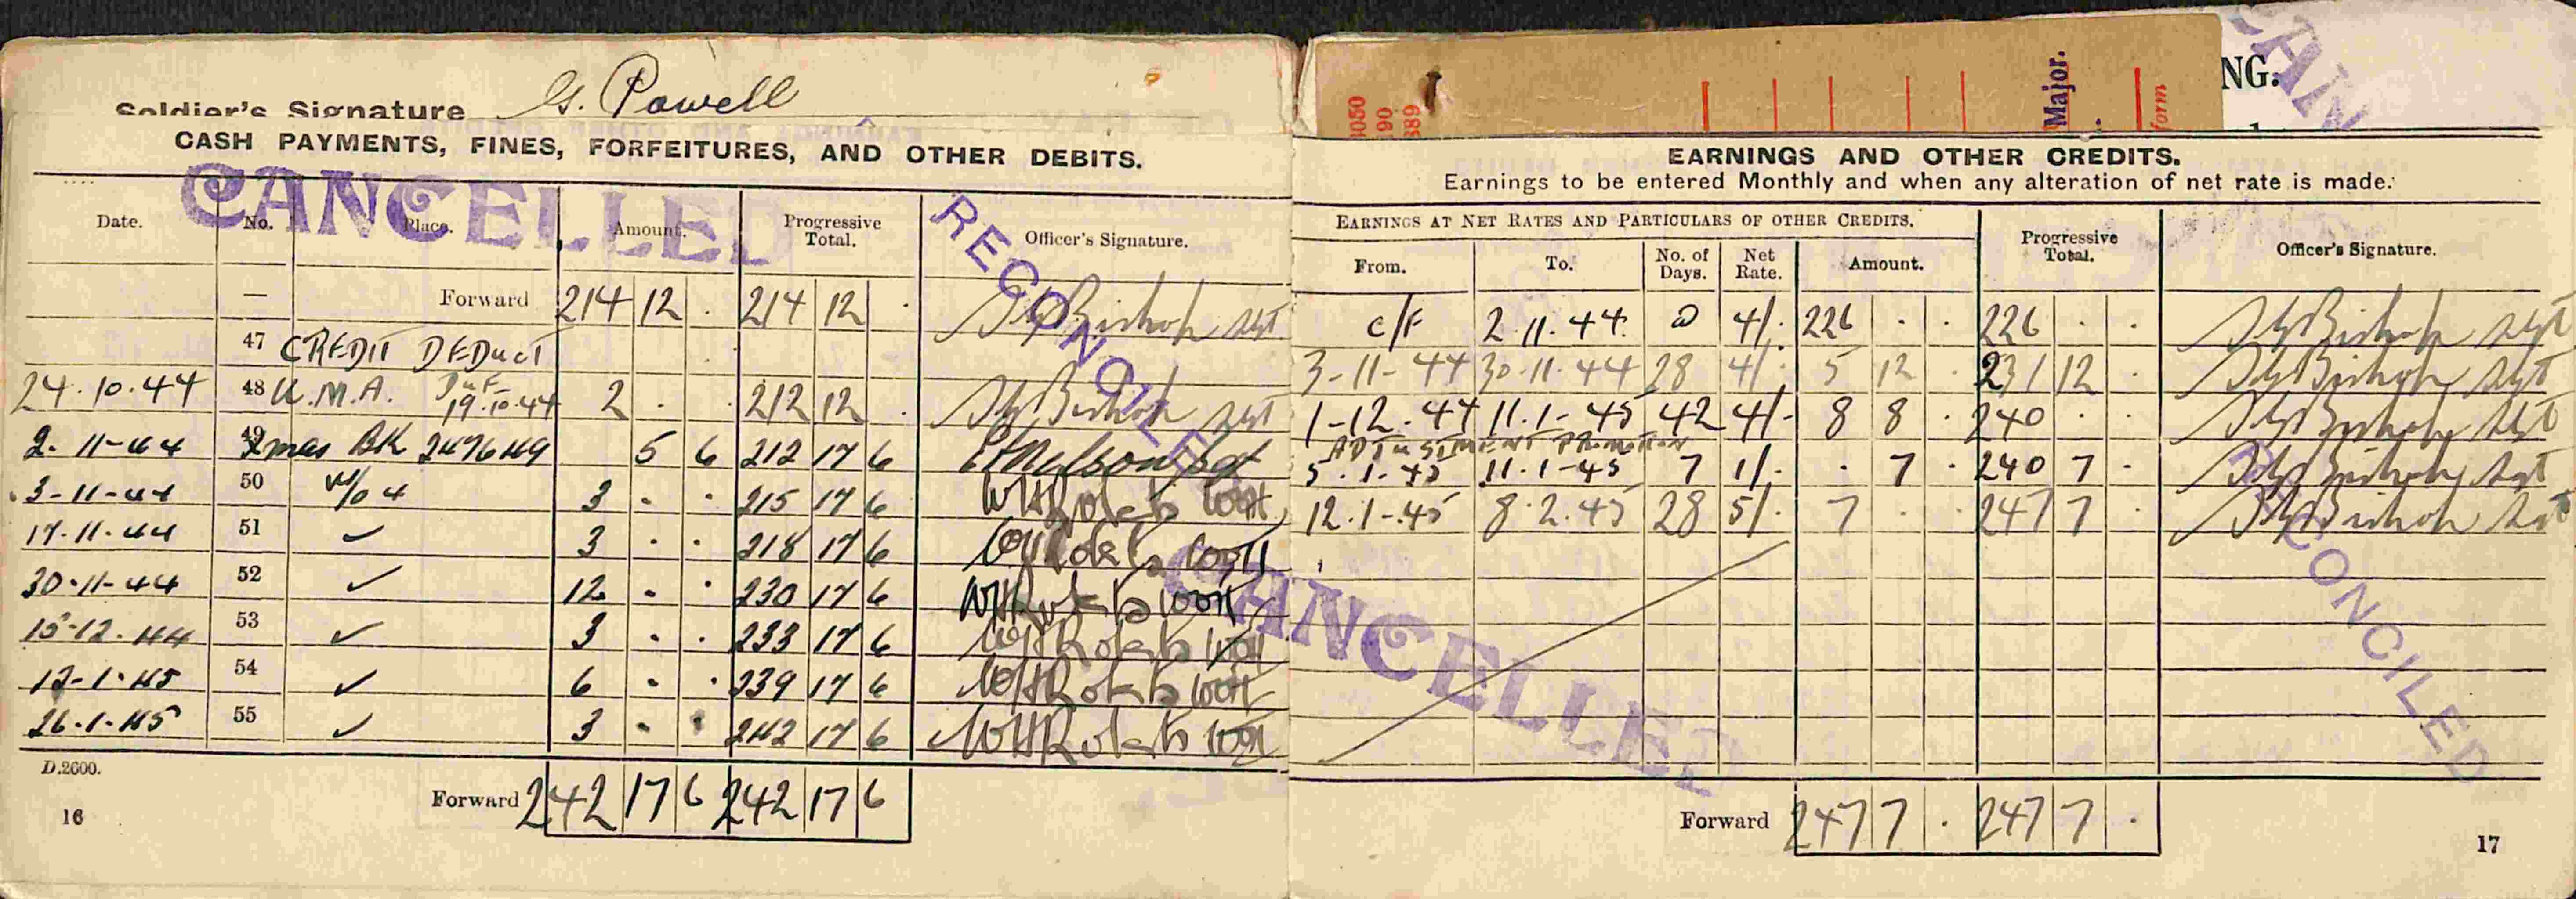 Soldier's Signature G. Powell
CASH PAYMENTS, FINES, FORFEITURES, AND OTHER DEBITS.
CANCELLED
RECONCILED
Date. No. Place. Amount. Progressive Total. Officer's Signature.
— Forward 214 12 . 214 12 . Bishop Sgt
47 CREDIT DEDUCT
24.10.44 48 U.M.A. 19.10.44 2 . . 212 12 . Bishop Sgt
2.11-44 49 Xmas BK 247649 5 6 212 17 6 Sgt
3-11-44 50 3 . . 215 17 6
17.11.44 51 ✓ 3 . . 218 17 6
30.11-44 52 ✓ 12 . . 230 17 6
15-12.44 53 ✓ 3 . . 233 17 6
12-1.45 54 ✓ 6 . . 239 17 6
26.1.45 55 ✓ 3 . . 242 17 6
D.2600.
Forward 242 17 6 242 17 6
16
Major.
form
NG.
3050
90
389
EARNINGS AND OTHER CREDITS.
Earnings to be entered Monthly and when any alteration of net rate is made.
EARNINGS AT NET RATES AND PARTICULARS OF OTHER CREDITS. Progressive Total. Officer's Signature.
From. To. No. of Days. Net Rate. Amount.
c/F 2.11.44 @ 4/- 226 . . 226 . . Bishop Sgt
3-11-44 30.11.44 28 4/- 5 12 . 231 12 . Bishop Sgt
1-12.44 11.1-45 42 4/- 8 8 . 240 . . Bishop Sgt
ADJUSTMENT PROMOTION
5.1.45 11.1-45 7 1/- . 7 . 240 7 . Bishop Sgt
12.1-45 8.2.45 28 5/- 7 . . 247 7 . Bishop Sgt
CANCELLED
RECONCILED
Forward 247 7 . 247 7 .
17